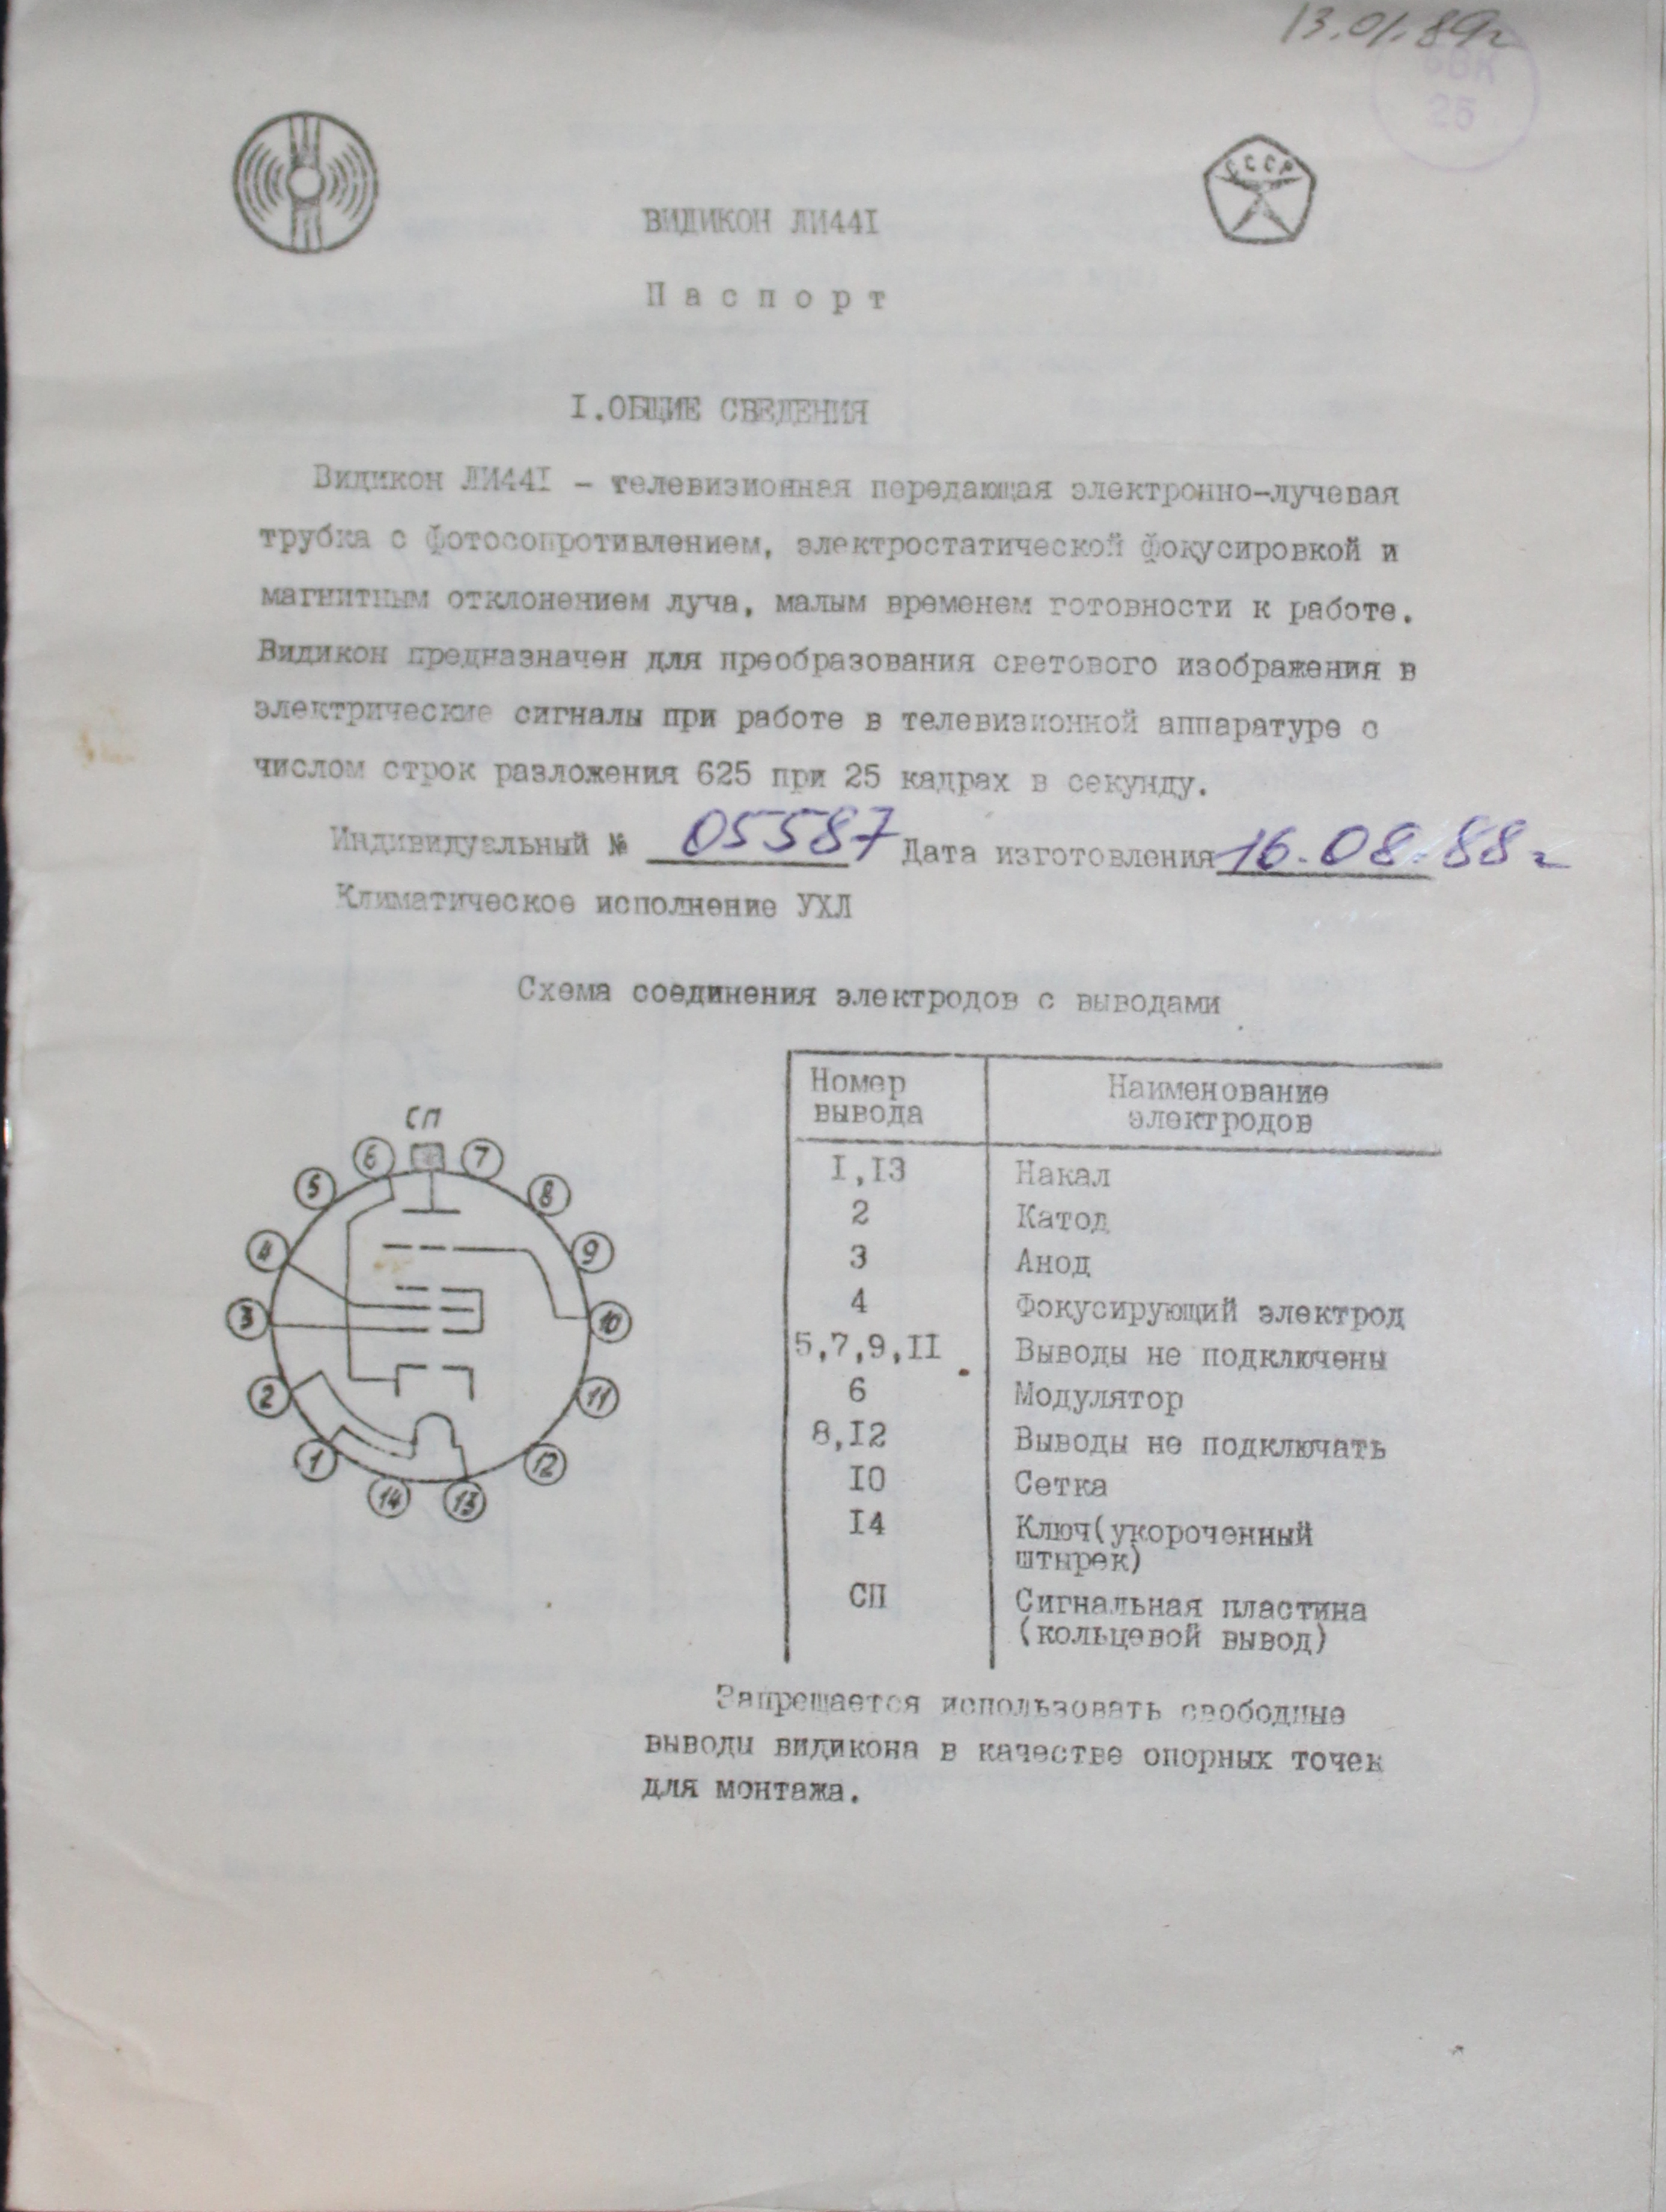 13.01.89г
ОВК
25
СССР
ВИДИКОН ЛИ44I
Паспорт
I.ОБЩИЕ СВЕДЕНИЯ
Видикон ЛИ44I - телевизионная передающая электронно-лучевая
трубка с фотосопротивлением, электростатической фокусировкой и
магнитным отклонением луча, малым временем готовности к работе.
Видикон предназначен для преобразования светового изображения в
электрические сигналы при работе в телевизионной аппаратуре с
числом строк разложения 625 при 25 кадрах в секунду.
Индивидуальный № 05587 Дата изготовления 16.08.88г
Климатическое исполнение УХЛ
Схема соединения электродов с выводами
СП
6 7
5 8
4 9
3 10
2 11
1 12
14 13
Номер вывода Наименование электродов
I,I3 Накал
2 Катод
3 Анод
4 Фокусирующий электрод
5,7,9,II Выводы не подключены
6 Модулятор
8,I2 Выводы не подключать
IO Сетка
I4 Ключ(укороченный
штырек)
СП Сигнальная пластина
(кольцевой вывод)
Запрещается использовать свободные
выводы видикона в качестве опорных точек
для монтажа.